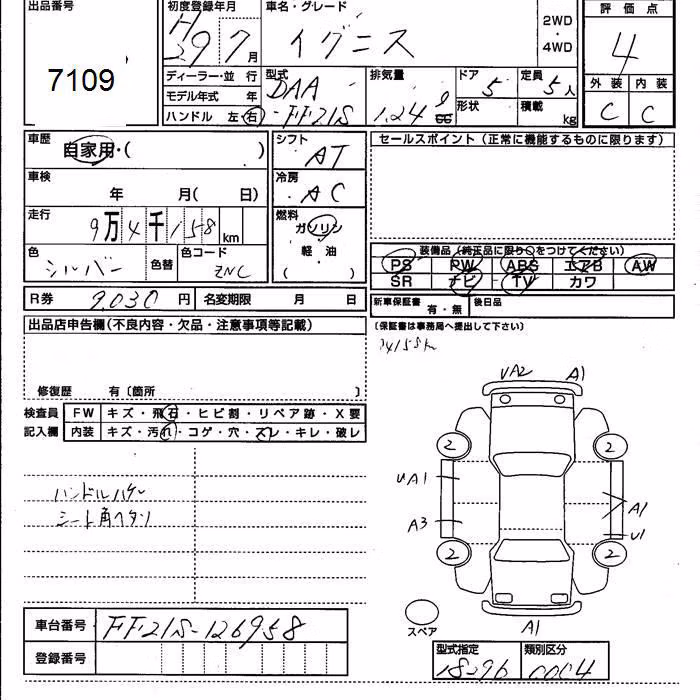 出品番号
7109
初度登録年月
H29 7月
車名・グレード
イグニス
2WD・4WD
評価点
4
外装 内装
C C
ディーラー・並行
モデル年式 年
ハンドル 左・右
型式
DAA-FF21S
排気量
1.24 ℓ cc
ドア
5
形状
定員
5人
積載
kg
車歴
自家用・( )
シフト
AT
セールスポイント(正常に機能するものに限ります)
車検
年 月( 日)
冷房
AC
走行
9万4千158km
燃料
ガソリン
軽・油
( )
色
シルバー
色替
色コード
ZNC
装備品(純正品に限り○をつけてください)
PS PW ABS エアB AW
SR ナビ TV カワ
R券 9,030円 名変期限 月 日
新車保証書 有・無 後日品
(保証書は事務局へ提出して下さい)
出品店申告欄(不良内容・欠品・注意事項等記載)
94158k
修復歴 有〔箇所 〕
検査員 FW キズ・飛石・ヒビ割・リペア跡・X要
記入欄 内装 キズ・汚れ・コゲ・穴・スレ・キレ・破レ
UA2 A1
2 2
UA1
A3 A1
U1
2 2
スペア
A1
ハンドルハゲ
シート角ヘタリ
車台番号 FF21S-126958
登録番号
型式指定 類別区分
18296 0004